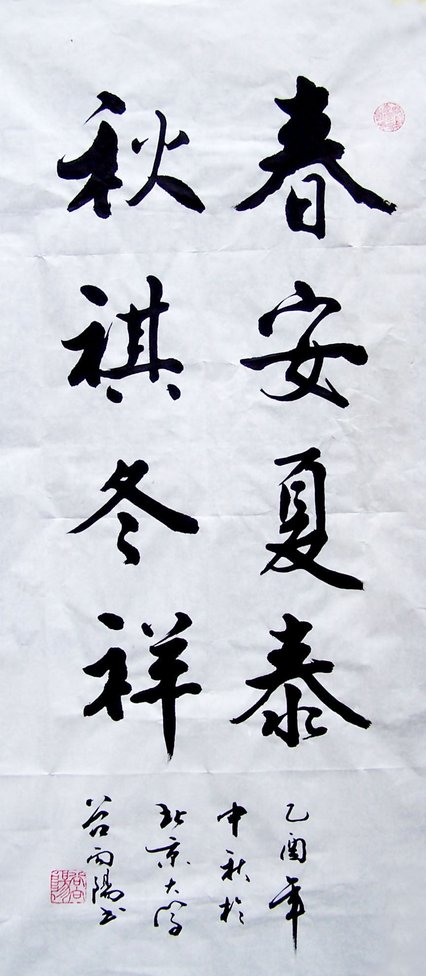 春安夏泰
秋祺冬祥
乙酉年
中秋於
北京大學
谷向陽書